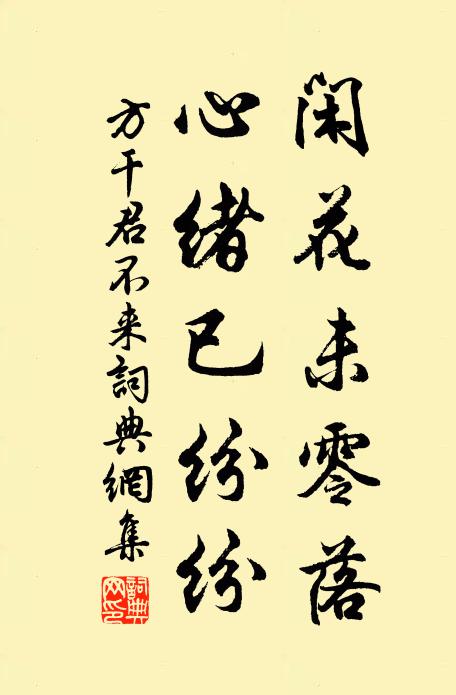 闲花未零落
心绪已纷纷
方干君不来詞典網集
詞典网印